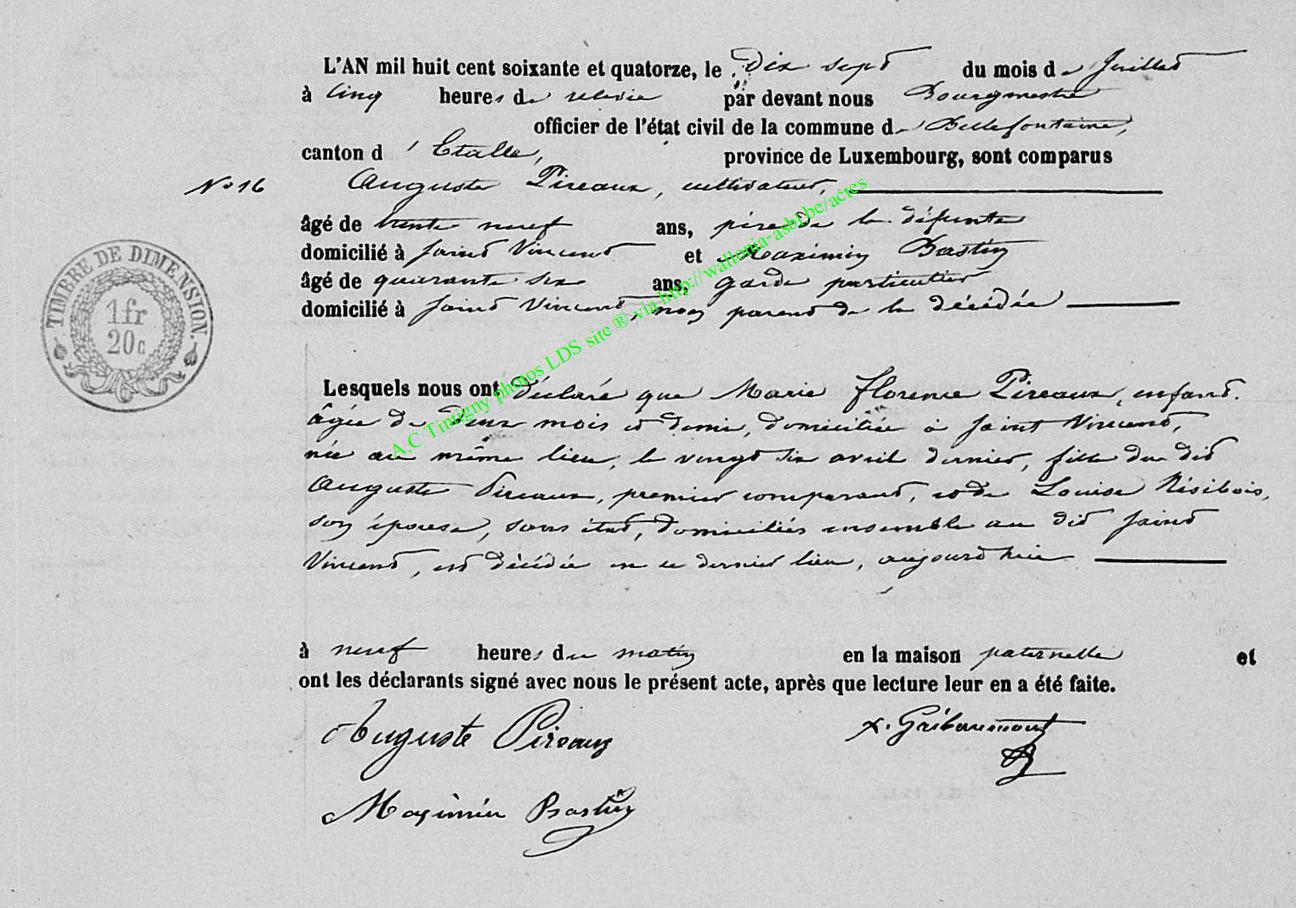 L'AN mil huit cent soixante et quatorze, le dix sept du mois de Juillet
à cinq heures de relevée par devant nous Bourgmestre
officier de l'état civil de la commune de Bellefontaine,
canton d'Etalle, province de Luxembourg, sont comparus
No 16 Auguste Pireaux, cultivateur,
âgé de trente neuf ans, père de la défunte
domicilié à Saint Vincent et Maximin Bastin
âgé de quarante six ans, garde particulier
domicilié à Saint Vincent, non parent de la décédée
TIMBRE DE DIMENSION.
1 fr
20 c
A.C Tintigny photos LDS site ® via http://wallonia-asbl.be/actes
Lesquels nous ont déclaré que Marie Florence Pireaux, enfant
âgée de deux mois et demi, domiciliée à Saint Vincent,
née au même lieu, le vingt six avril dernier, fille du dit
Auguste Pireaux, premier comparant, et de Louise Résibois,
son épouse, sans état, domiciliés ensemble au dit Saint
Vincent, est décédée en ce dernier lieu, aujourd'hui
à neuf heures du matin en la maison paternelle et
ont les déclarants signé avec nous le présent acte, après que lecture leur en a été faite.
Auguste Pireaux
x. Gribaumont
Maximin Bastin